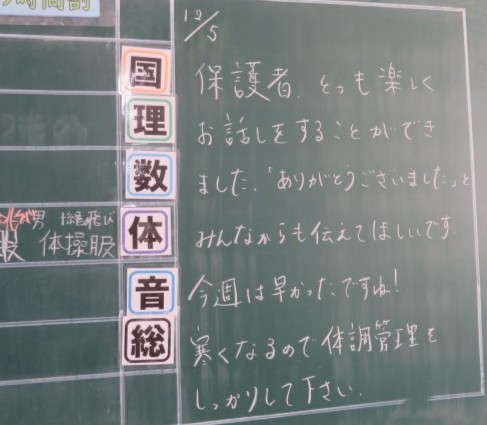 時間割
国
理
数
体
音
総
男 縄飛び
体操服
12/5
保護者、とっも楽しく
お話しをすることができ
ました。「ありがとうございました。」と
みんなからも伝えてほしいです。
今週は早かったですね!
寒くなるので体調管理を
しっかりして下さい。